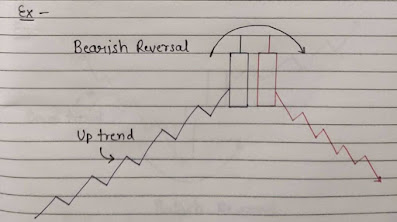 Ex –
Bearish Reversal
Up trend